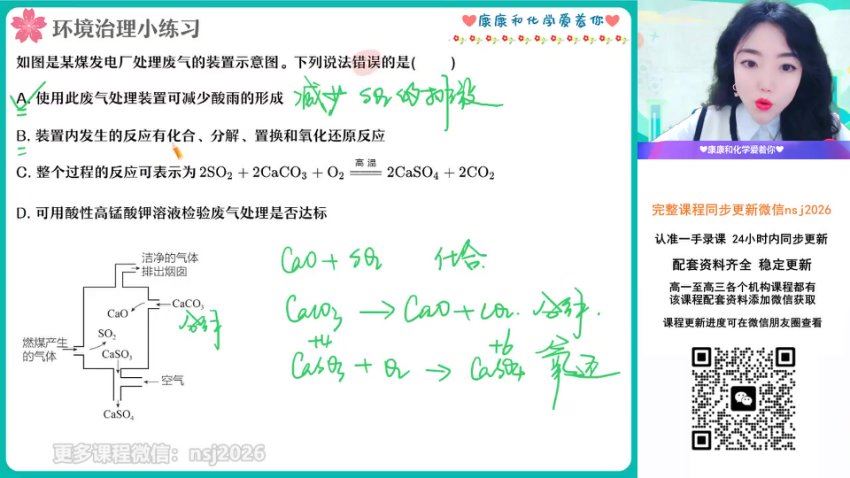 环境治理小练习
❤康康和化学爱着你❤
如图是某煤发电厂处理废气的装置示意图。下列说法错误的是( )
A. 使用此废气处理装置可减少酸雨的形成 减少 SO₂ 的排放
B. 装置内发生的反应有化合、分解、置换和氧化还原反应
C. 整个过程的反应可表示为 2SO₂ + 2CaCO₃ + O₂ 高温 2CaSO₄ + 2CO₂
D. 可用酸性高锰酸钾溶液检验废气处理是否达标
洁净的气体
排出烟囱
CaO
CaCO₃
分解
SO₂
燃煤产生
的气体
CaSO₃
空气
CaSO₄
CaO + SO₂ 化合.
CaCO₃ → CaO + CO₂. 分解.
+4 +6
CaSO₃ + O₂ → CaSO₄ 氧还
更多课程微信：nsj2026
❤康康和化学爱着你❤
完整课程同步更新微信nsj2026
认准一手录课 24小时内同步更新
配套资料齐全 稳定更新
高一至高三各个机构课程都有
该课程配套资料添加微信获取
课程更新进度可在微信朋友圈查看